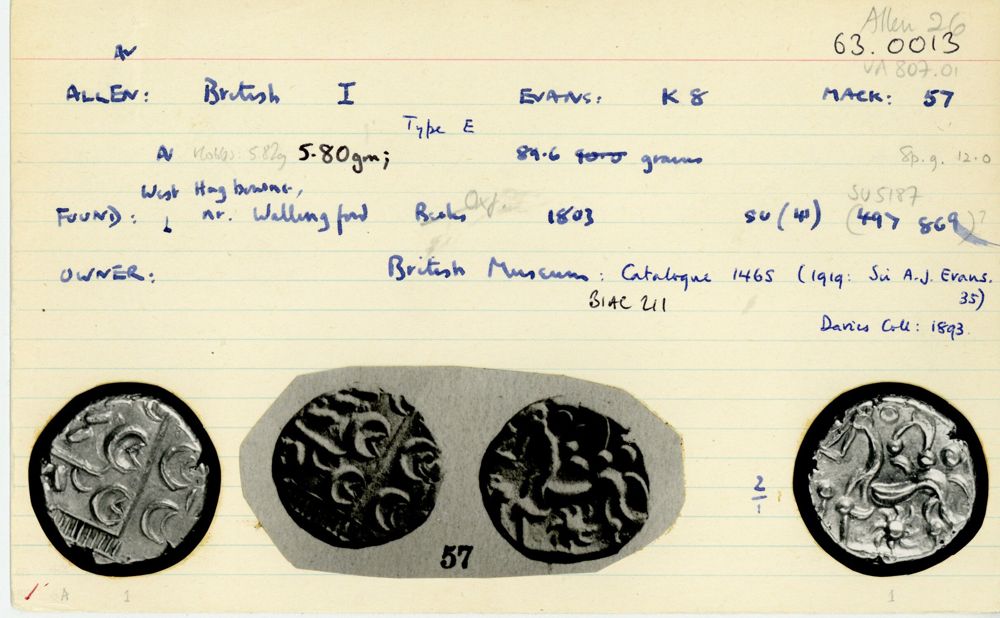 Allen 26
63.0013
VA 807.01
AV
ALLEN: British I EVANS: K 8 MACK: 57
Type E
AV Hobbs: 5.82g 5.80gm; 89.6 grains Sp. g. 12.0
West Hagbourne,
FOUND: nr. Wallingford Berks Oxf. 1803 SU (41) (497 869)?
SU 5187
OWNER: British Museum: Catalogue 1465 (1919: Sir A.J. Evans.
35)
BIAC 211
Davies Coll: 1893.
57
2
1
A 1 1